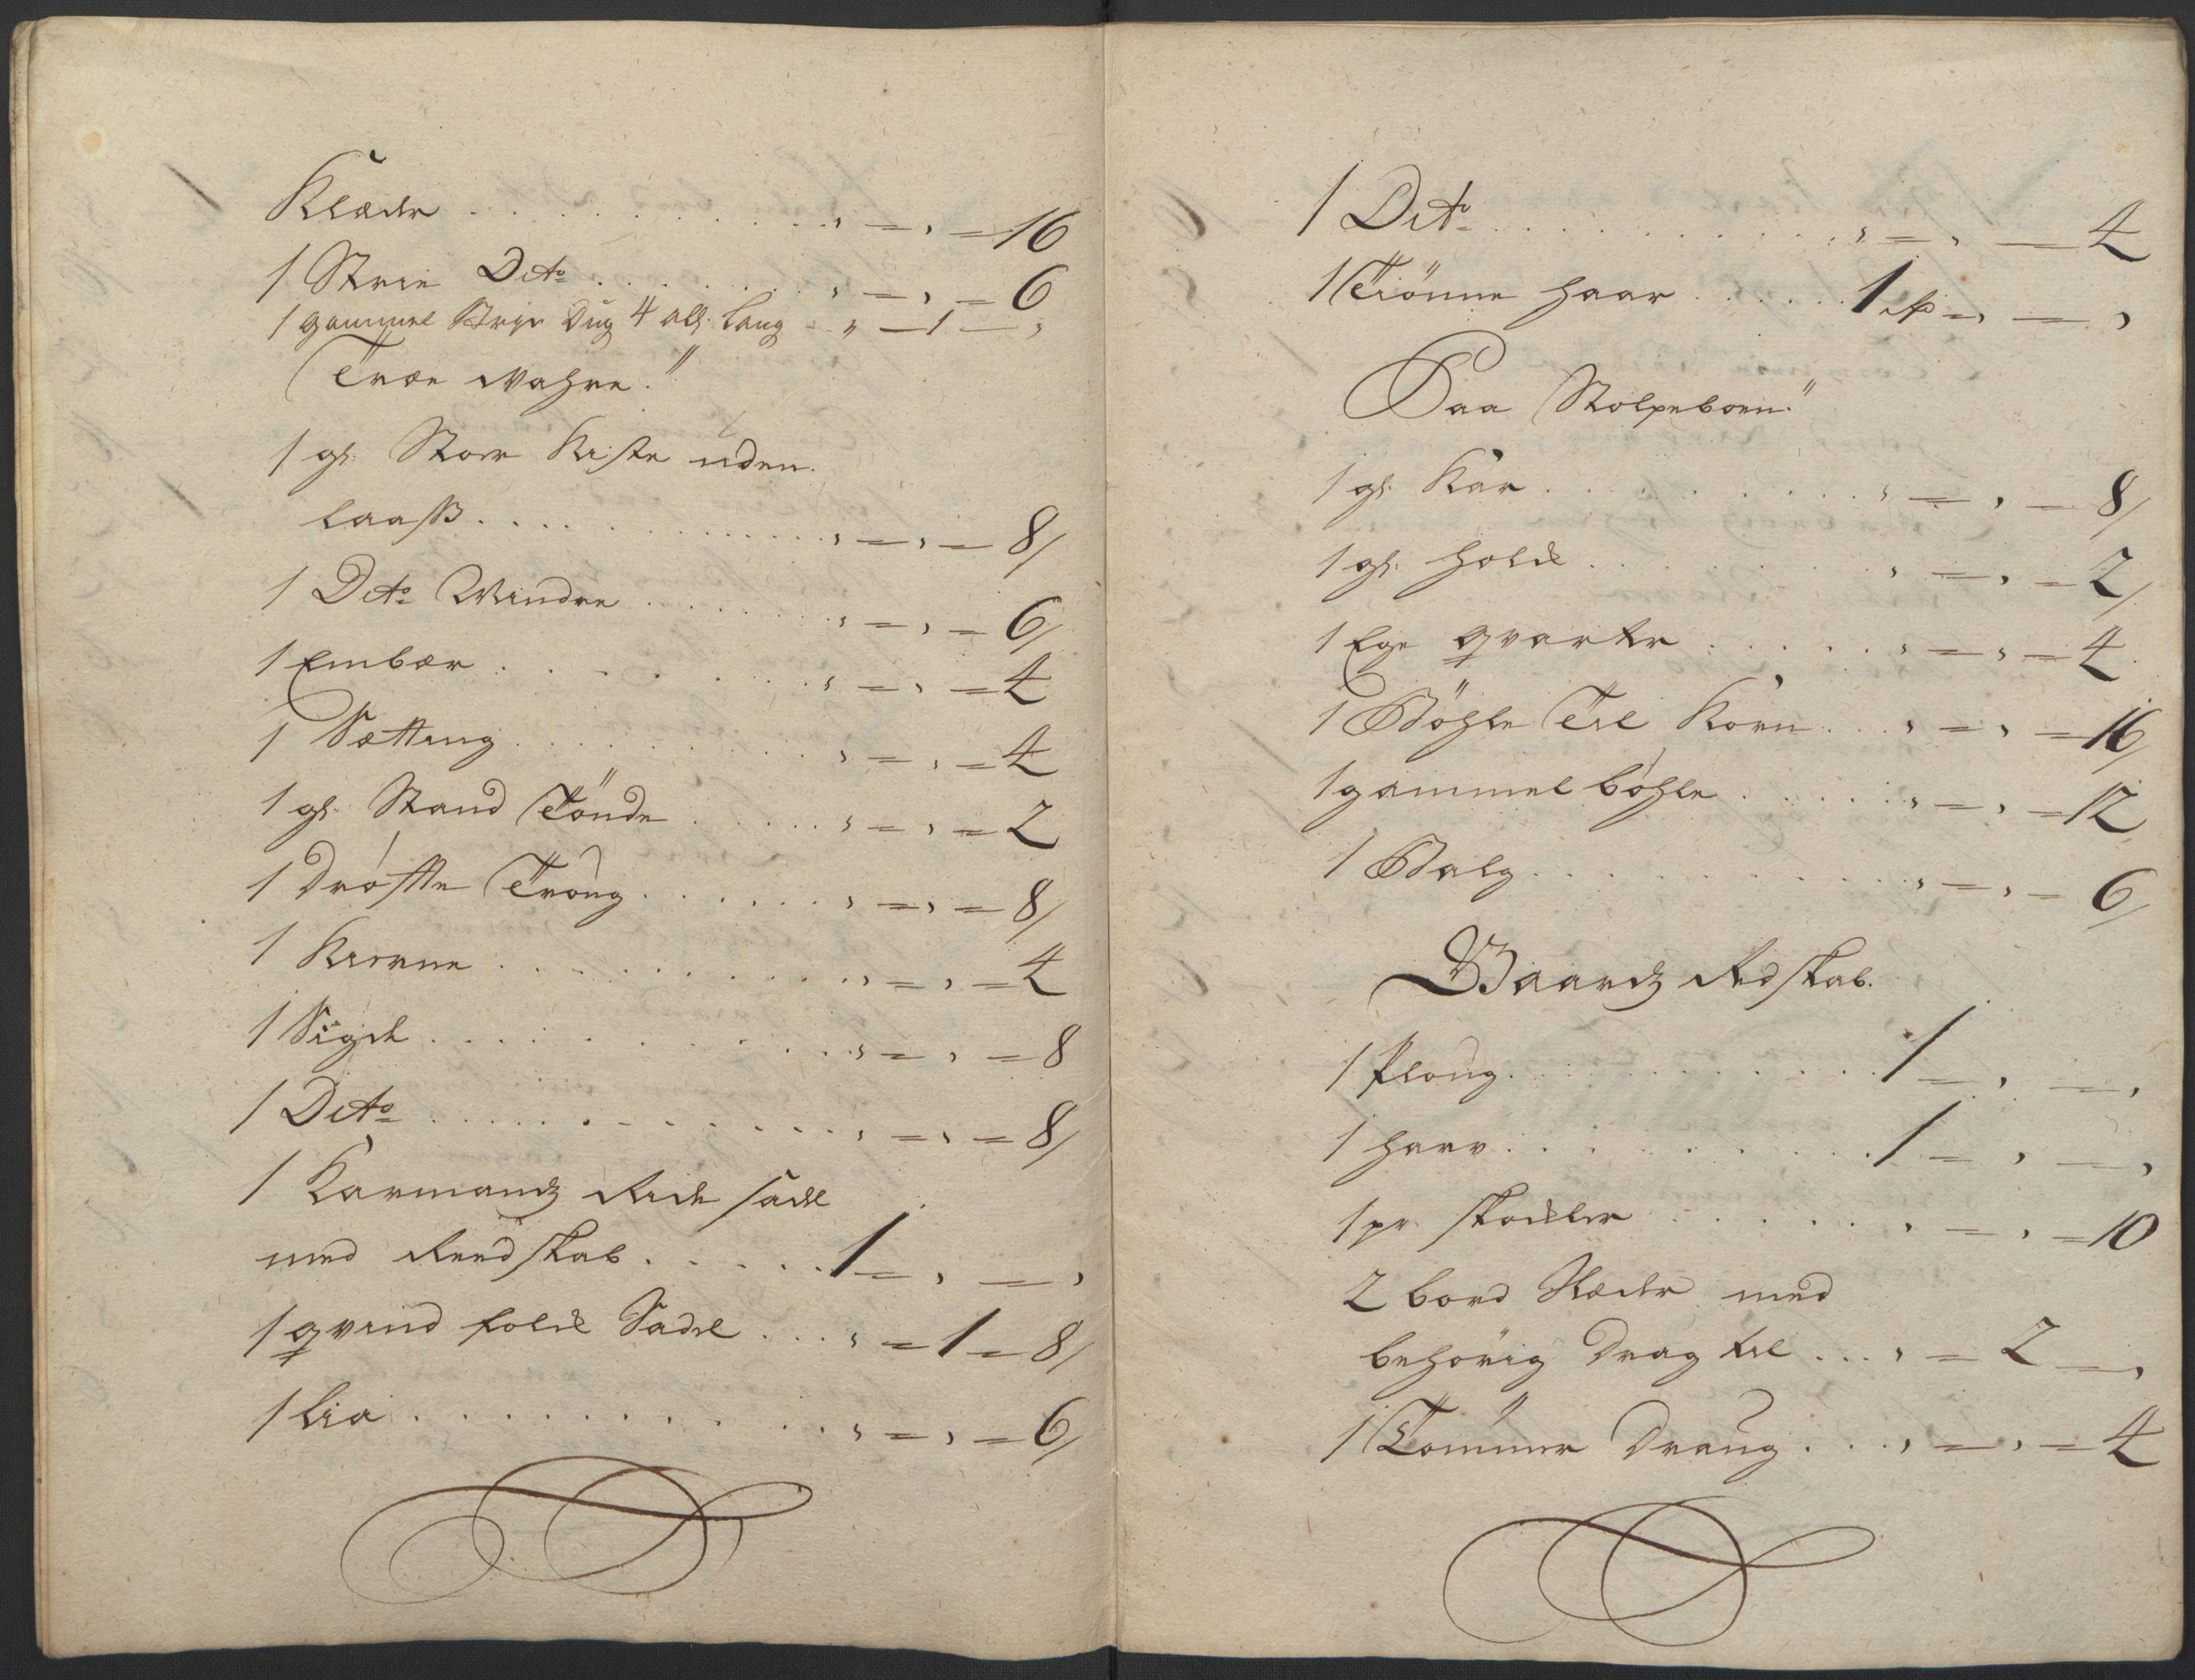 Klæder . . . . . . . . . . , = , = 16
1 Strie Dito . . . . . . . , = , = 6
1 gammel Strie Dug 4 all: lang - „ — 1 — ,
Træe Wahre."
1 gl: Stor Kiste uden
laaß . . . . . . . . . . , = , = 8/
1 Dito Mindre . . . . . . , = , = 6/
1 Embær . . . . . . . . , = , = 4
1 Sætting . . . . . . . , = , = 4
1 gl: Stand Tönde . . . . , = , = 2
1 Drøfte Troug . . . . . , = , = 8/
1 Kierne . . . . . . . . , = , = 4
1 Sigde . . . . . . . . , = , = 8
1 Dito . . . . . . . . . , = , = 8/
1 Karmandz Ride Sadel
med Reedskab . . . . . 1 = , = ,
1 qvind folck Sadel . . . , = 1 = 8/
1 Lia . . . . . . . . . , = , = 6/
1 Dito . . . . . . . . . , = , = 4
1 Tiönne haar . . . . . 1 = , = ,
Paa Stolpeboen."
1 gl: Kar . . . . . . . , = , = 8/
1 gl: holck . . . . . . , = , = 2/
1 Ege qvarter . . . . . , = , = 4
1 Böhle Til Korn . . . , = , = 16/
1 gammel böhle . . . . , = , = 12
1 Balg . . . . . . . . , = , = 6/
Gaardz Redskab.
1 Ploug . . . . . . . . 1 = , = ,
1 harv . . . . . . . . 1 = , = ,
1 pr. skockler . . . . . , = , = 10
2 bord Slæder med
behörig Drag til . . . , = 2 = ,
1 Tömmer Draug . . . , = , = 4